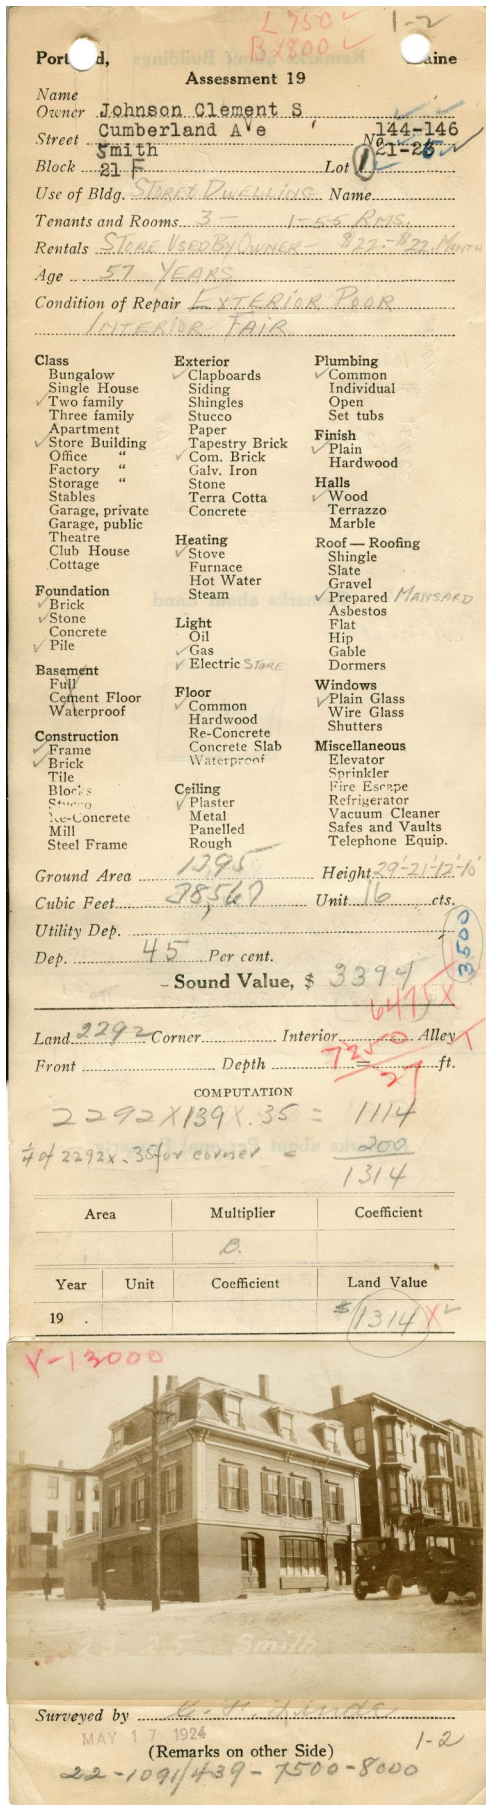 L 750 ✓
1-2
B 1800 ✓
Port d, aine
Assessment 19
Name
Owner Johnson Clement S
Street Cumberland Ave No 144-146
Smith 21-25
Block 21 F Lot 1
Use of Bldg. STORE & DWELLING Name
Tenants and Rooms 3 — 1-5-5 RMS.
Rentals STORE USED BY OWNER - $22.-$22. MONTH
Age 57 YEARS
Condition of Repair EXTERIOR POOR
INTERIOR FAIR
Class
Bungalow
Single House
✓ Two family
Three family
Apartment
✓ Store Building
Office "
Factory "
Storage "
Stables
Garage, private
Garage, public
Theatre
Club House
Cottage
Foundation
✓ Brick
✓ Stone
Concrete
✓ Pile
Basement
Full
Cement Floor
Waterproof
Construction
✓ Frame
✓ Brick
Tile
Blocks
Stucco
Re-Concrete
Mill
Steel Frame
Exterior
✓ Clapboards
Siding
Shingles
Stucco
Paper
Tapestry Brick
✓ Com. Brick
Galv. Iron
Stone
Terra Cotta
Concrete
Heating
✓ Stove
Furnace
Hot Water
Steam
Light
Oil
✓ Gas
✓ Electric STORE
Floor
✓ Common
Hardwood
Re-Concrete
Concrete Slab
Waterproof
Ceiling
✓ Plaster
Metal
Panelled
Rough
Plumbing
✓ Common
Individual
Open
Set tubs
Finish
✓ Plain
Hardwood
Halls
✓ Wood
Terrazzo
Marble
Roof — Roofing
Shingle
Slate
Gravel
✓ Prepared MANSARD
Asbestos
Flat
Hip
Gable
Dormers
Windows
✓ Plain Glass
Wire Glass
Shutters
Miscellaneous
Elevator
Sprinkler
Fire Escape
Refrigerator
Vacuum Cleaner
Safes and Vaults
Telephone Equip.
Ground Area 1395 Height 29'-21'-12'-10'
Cubic Feet 38,567 Unit 16 cts.
Utility Dep.
3500
Dep. 45 Per cent.
Sound Value, $ 3394
6475 X
Land 2292 Corner Interior Alley
7250
Front Depth = ft.
27
COMPUTATION
2292 X 139 X .35 = 1114
1/4 of 2292 x .35 for corner = 200
1314
Area Multiplier Coefficient
B.
Year Unit Coefficient Land Value
19 . $1314 X ✓
V-13000
23-25 Smith
Surveyed by
MAY 17 1924
1-2
(Remarks on other Side)
22-1091/439-7500-8000